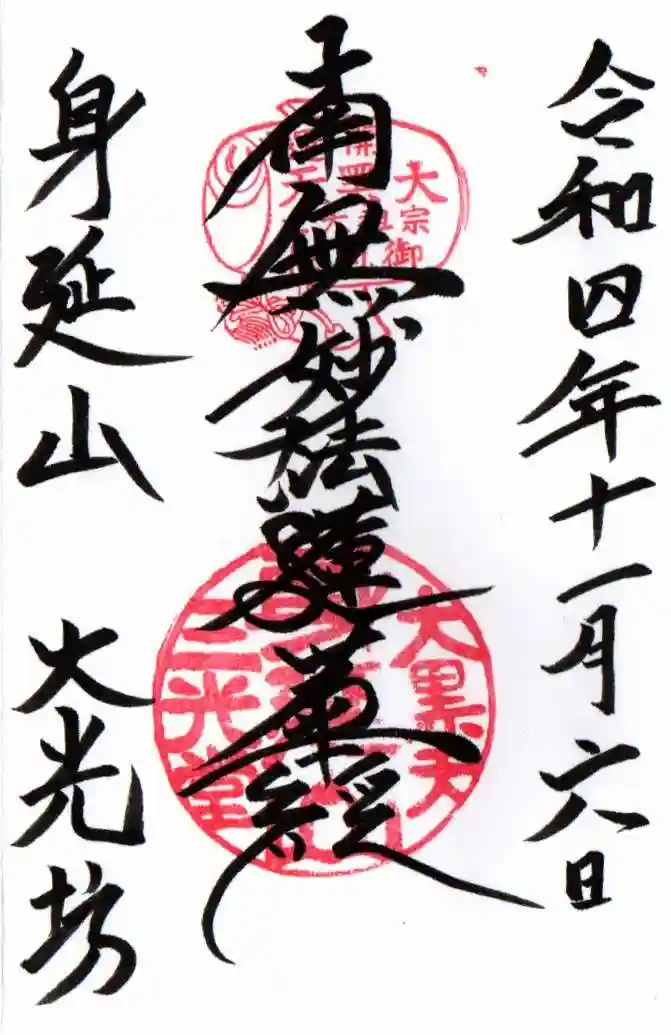 令和四年十一月六日
南無妙法蓮華経
身延山 大光坊
大黒天
三光堂